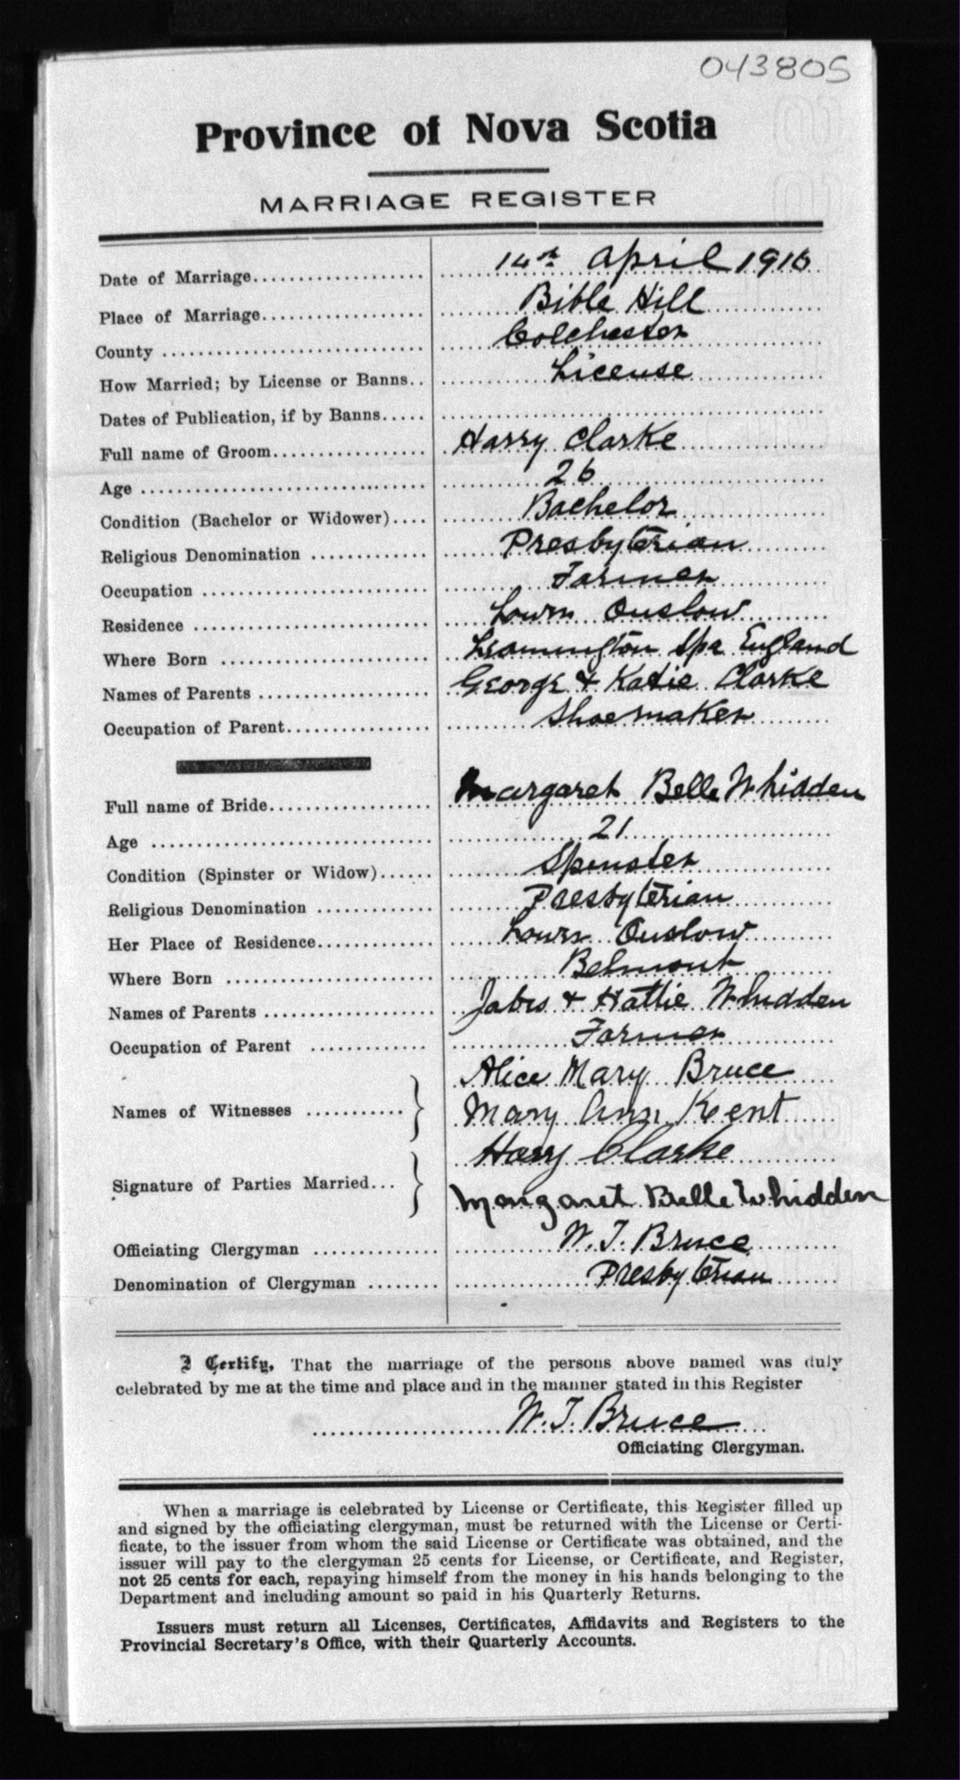 043805
Province of Nova Scotia
MARRIAGE REGISTER
Date of Marriage 14th April 1916
Place of Marriage Bible Hill
County Colchester
How Married; by License or Banns License
Dates of Publication, if by Banns
Full name of Groom Harry Clarke
Age 26
Condition (Bachelor or Widower) Bachelor
Religious Denomination Presbyterian
Occupation Farmer
Residence Lower Onslow
Where Born Leamington Spa England
Names of Parents George & Katie Clarke
Occupation of Parent Shoemaker
Full name of Bride Margaret Belle Whidden
Age 21
Condition (Spinster or Widow) Spinster
Religious Denomination Presbyterian
Her Place of Residence Lower Onslow
Where Born Belmont
Names of Parents & Hattie Whidden
Occupation of Parent Farmer
Names of Witnesses Alice Mary Bruce
Mary Ann Kent
Signature of Parties Married Harry Clarke
Margaret Belle Whidden
Officiating Clergyman W. J. Bruce
Denomination of Clergyman Presbyterian
I Certify, That the marriage of the persons above named was duly
celebrated by me at the time and place and in the manner stated in this Register
W. J. Bruce
Officiating Clergyman.
When a marriage is celebrated by License or Certificate, this Register filled up
and signed by the officiating clergyman, must be returned with the License or Certi-
ficate, to the issuer from whom the said License or Certificate was obtained, and the
issuer will pay to the clergyman 25 cents for License, or Certificate, and Register,
not 25 cents for each, repaying himself from the money in his hands belonging to the
Department and including amount so paid in his Quarterly Returns.
Issuers must return all Licenses, Certificates, Affidavits and Registers to the
Provincial Secretary's Office, with their Quarterly Accounts.